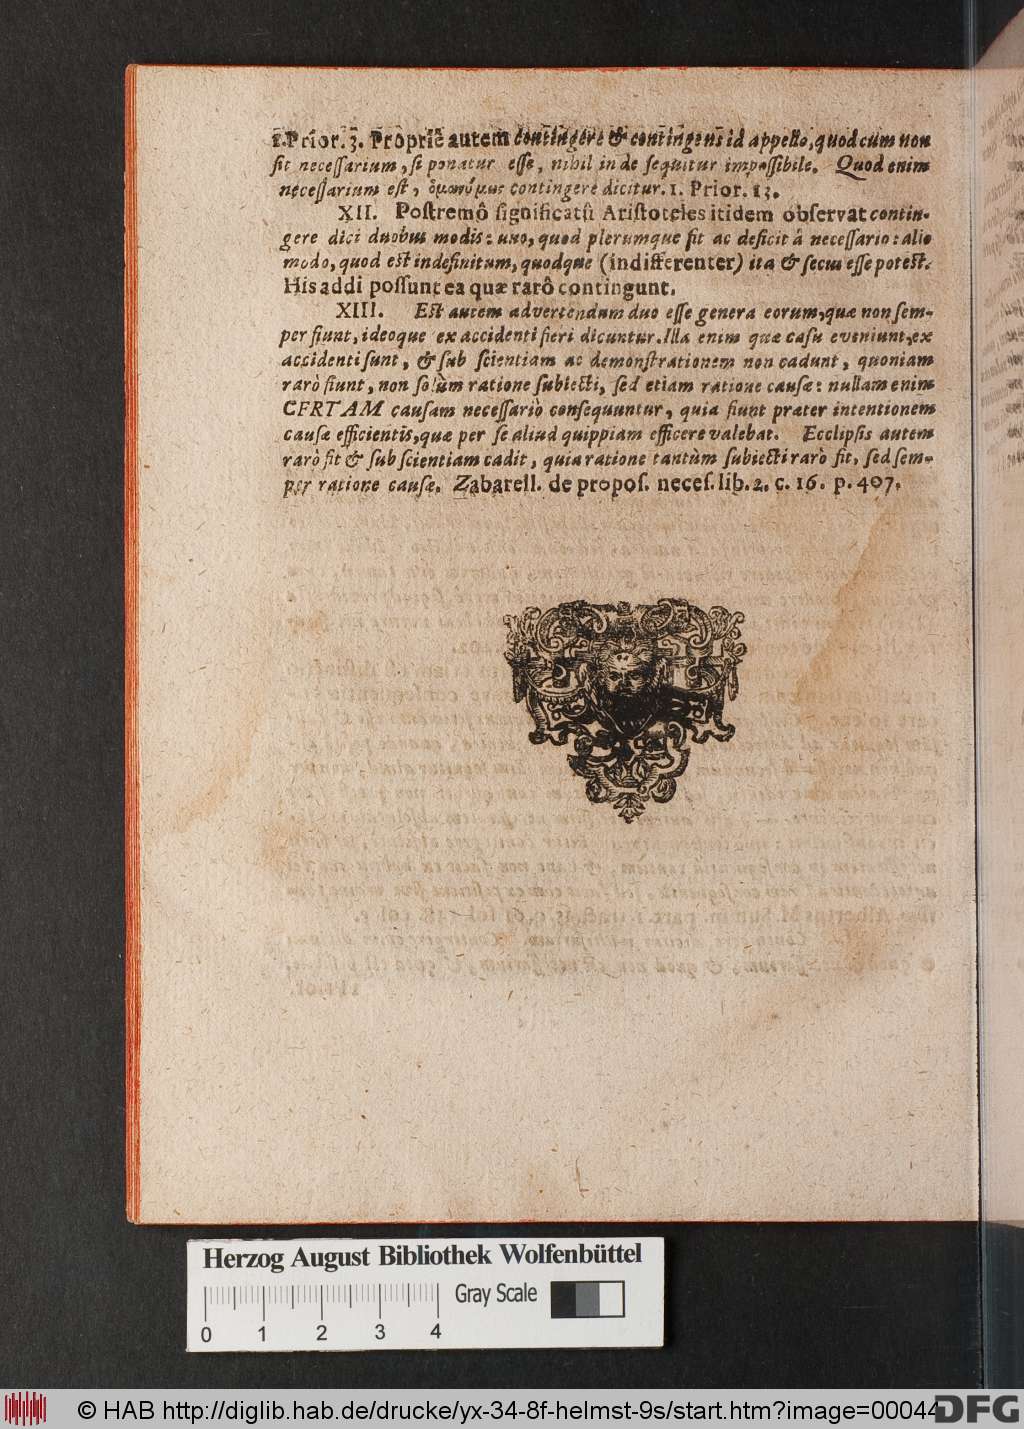 1. Prior. 3. Propriè autem contingere & contingens id appello, quod cum non
sit necessarium, si ponatur esse, nihil inde sequitur impossibile. Quod enim
necessarium est, ὁμωνύμως contingere dicitur. 1. Prior. 13.
XII. Postremô significatû Aristoteles itidem observat contin-
gere dici duobus modis: uno, quod plerumque fit ac deficit â necessario: alio
modo, quod est indefinitum, quodque (indifferenter) ita & secus esse potest.
His addi possunt ea quæ rarô contingunt.
XIII. Est autem advertendum duo esse genera eorum, quæ non sem-
per fiunt, ideoque ex accidenti fieri dicuntur. Illa enim quæ casu eveniunt, ex
accidenti sunt, & sub scientiam ac demonstrationem non cadunt, quoniam
rarò fiunt, non solùm ratione subiecti, sed etiam ratione causæ: nullam enim
CERTAM causam necessariò consequuntur, quia fiunt præter intentionem
causæ efficientis, quæ per se aliud quippiam efficere valebat. Ecclipsis autem
rarò fit & sub scientiam cadit, quia ratione tantùm subiecti rarò fit, sed sem-
per ratione causæ. Zabarell. de propos. neces. lib. 2. c. 16. p. 407.
Herzog August Bibliothek Wolfenbüttel
Gray Scale
0 1 2 3 4
© HAB http://diglib.hab.de/drucke/yx-34-8f-helmst-9s/start.htm?image=00044
DFG